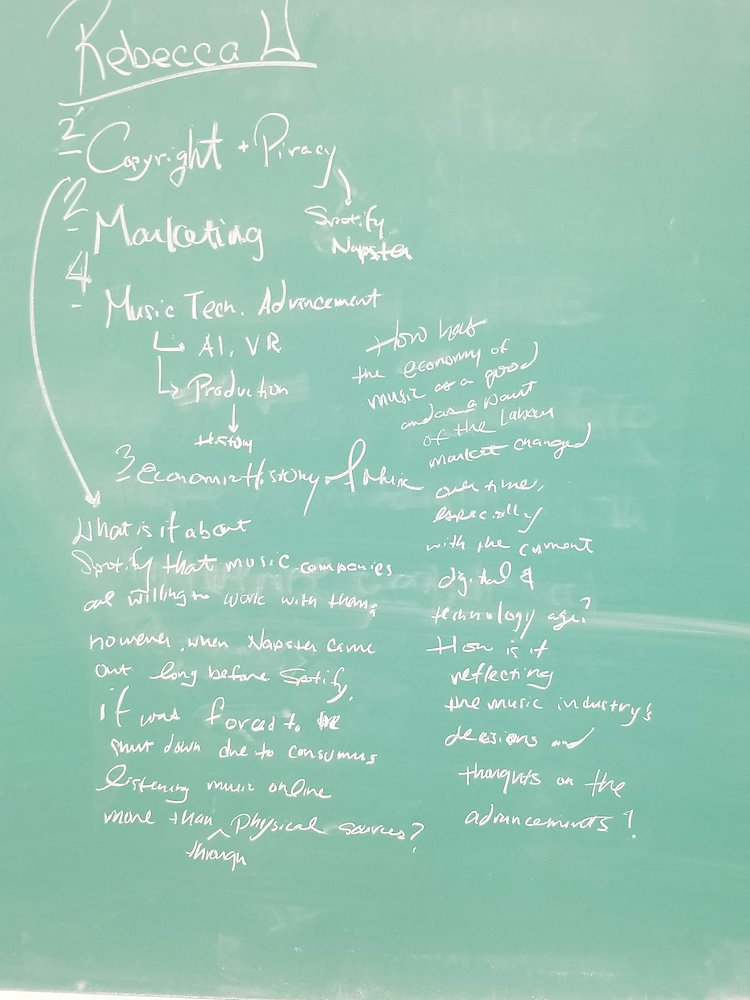 Rebecca W
2 - Copyright + Piracy
Spotify
Napster
2 - Marketing
4 - Music Tech. Advancement
AI, VR
Production
History
3 - Economic History of Music
What is it about
Spotify that music companies
are willing to work with them,
however, when Napster came
out long before Spotify,
it was forced to be
shut down due to consumers
listening music online
more than through physical sources?
How has
the economy of
music as a good
and as a part
of the labour
market changed
over time,
especially
with the current
digital &
technology age?
How is it
reflecting
the music industry's
decisions and
thoughts on the
advancements?